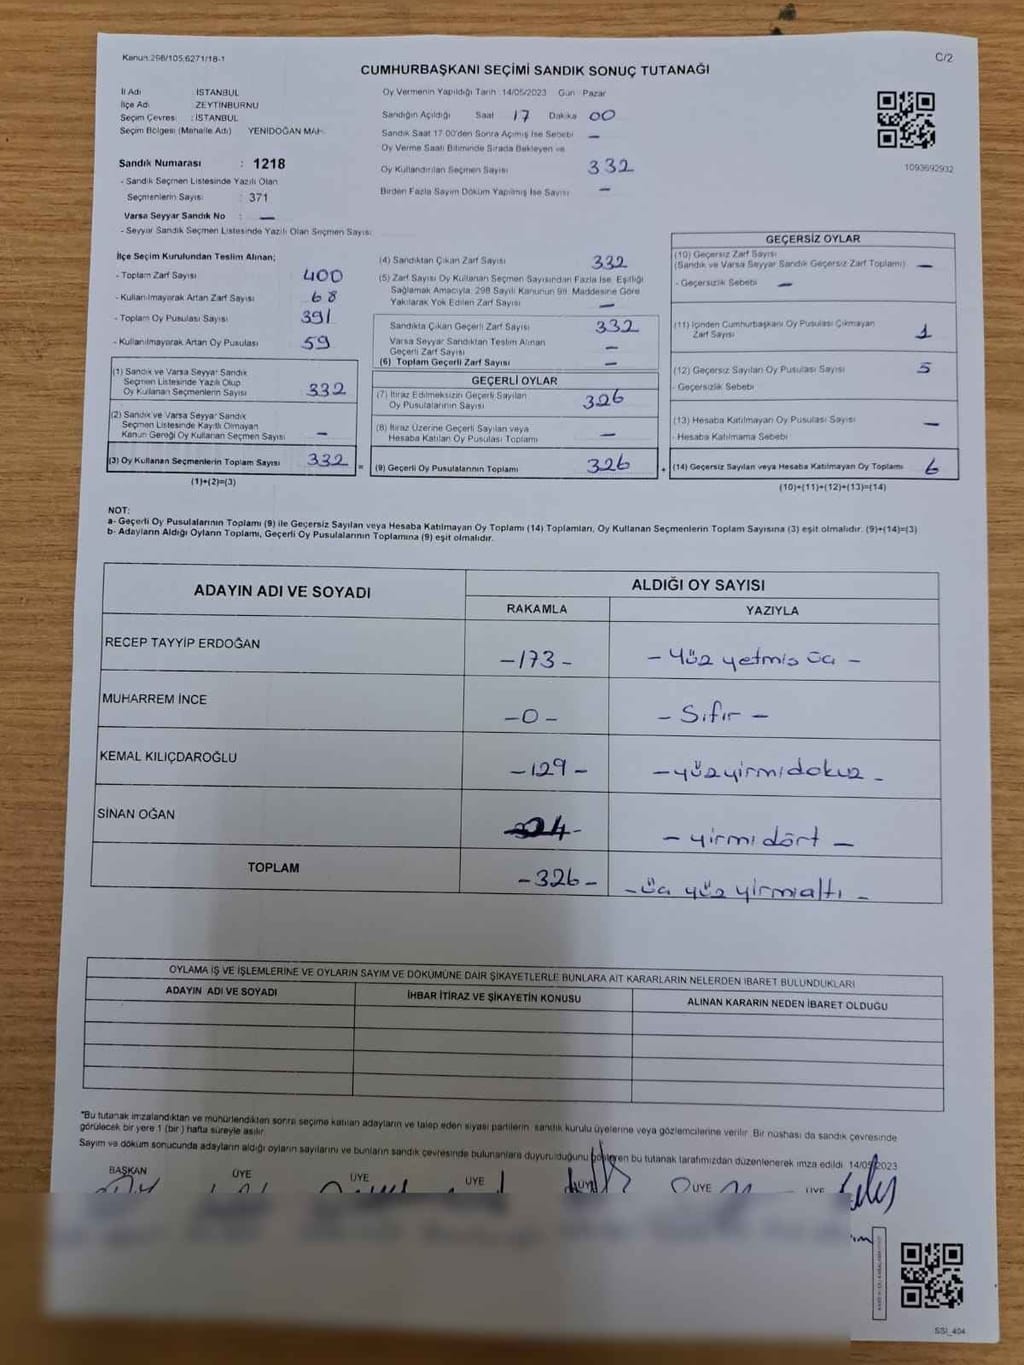 Kanun:298/105,6271/18-1
C/2
CUMHURBAŞKANI SEÇİMİ SANDIK SONUÇ TUTANAĞI
İl Adı : İSTANBUL
İlçe Adı : ZEYTİNBURNU
Seçim Çevresi : İSTANBUL
Seçim Bölgesi (Mahalle Adı) YENİDOĞAN MAH.
Sandık Numarası : 1218
- Sandık Seçmen Listesinde Yazılı Olan
Seçmenlerin Sayısı : 371
Varsa Seyyar Sandık No : —
- Seyyar Sandık Seçmen Listesinde Yazılı Olan Seçmen Sayısı:
Oy Vermenin Yapıldığı Tarih :14/05/2023 Gün : Pazar
Sandığın Açıldığı Saat 17 Dakika 00
Sandık Saat 17.00'den Sonra Açılmış İse Sebebi —
Oy Verme Saati Bitiminde Sırada Bekleyen ve
Oy Kullandırılan Seçmen Sayısı 332
Birden Fazla Sayım Döküm Yapılmış İse Sayısı —
1093692932
İlçe Seçim Kurulundan Teslim Alınan;
- Toplam Zarf Sayısı 400
- Kullanılmayarak Artan Zarf Sayısı 68
- Toplam Oy Pusulası Sayısı 391
- Kullanılmayarak Artan Oy Pusulası 59
(1) Sandık ve Varsa Seyyar Sandık
Seçmen Listesinde Yazılı Olup
Oy Kullanan Seçmenlerin Sayısı 332
(2) Sandık ve Varsa Seyyar Sandık
Seçmen Listesinde Kayıtlı Olmayan
Kanun Gereği Oy Kullanan Seçmen Sayısı —
(3) Oy Kullanan Seçmenlerin Toplam Sayısı 332
(1)+(2)=(3)
(4) Sandıktan Çıkan Zarf Sayısı 332
(5) Zarf Sayısı Oy Kullanan Seçmen Sayısından Fazla İse, Eşitliği
Sağlamak Amacıyla, 298 Sayılı Kanunun 98. Maddesine Göre
Yakılarak Yok Edilen Zarf Sayısı —
Sandıkta Çıkan Geçerli Zarf Sayısı 332
Varsa Seyyar Sandıktan Teslim Alınan
Geçerli Zarf Sayısı —
(6) Toplam Geçerli Zarf Sayısı —
GEÇERLİ OYLAR
(7) İtiraz Edilmeksizin Geçerli Sayılan
Oy Pusulalarının Sayısı 326
(8) İtiraz Üzerine Geçerli Sayılan veya
Hesaba Katılan Oy Pusulası Toplamı —
(9) Geçerli Oy Pusulalarının Toplamı 326
GEÇERSİZ OYLAR
(10) Geçersiz Zarf Sayısı
(Sandık ve Varsa Seyyar Sandık Geçersiz Zarf Toplamı) —
- Geçersizlik Sebebi —
(11) İçinden Cumhurbaşkanı Oy Pusulası Çıkmayan
Zarf Sayısı 1
(12) Geçersiz Sayılan Oy Pusulası Sayısı 5
- Geçersizlik Sebebi
(13) Hesaba Katılmayan Oy Pusulası Sayısı —
- Hesaba Katılmama Sebebi
(14) Geçersiz Sayılan veya Hesaba Katılmayan Oy Toplamı 6
(10)+(11)+(12)+(13)=(14)
NOT:
a- Geçerli Oy Pusulalarının Toplamı (9) ile Geçersiz Sayılan veya Hesaba Katılmayan Oy Toplamı (14) Toplamları, Oy Kullanan Seçmenlerin Toplam Sayısına (3) eşit olmalıdır. (9)+(14)=(3)
b- Adayların Aldığı Oyların Toplamı, Geçerli Oy Pusulalarının Toplamına (9) eşit olmalıdır.
ADAYIN ADI VE SOYADI ALDIĞI OY SAYISI
RAKAMLA YAZIYLA
RECEP TAYYİP ERDOĞAN -173- - Yüz yetmiş üç -
MUHARREM İNCE -0- - Sıfır -
KEMAL KILIÇDAROĞLU -129- - yüz yirmi dokuz -
SİNAN OĞAN 24- - yirmi dört -
TOPLAM -326- - üç yüz yirmi altı -
OYLAMA İŞ VE İŞLEMLERİNE VE OYLARIN SAYIM VE DÖKÜMÜNE DAİR ŞİKAYETLERLE BUNLARA AİT KARARLARIN NELERDEN İBARET BULUNDUKLARI
ADAYIN ADI VE SOYADI İHBAR İTİRAZ VE ŞİKAYETİN KONUSU ALINAN KARARIN NEDEN İBARET OLDUĞU
"Bu tutanak imzalandıktan ve mühürlendikten sonra seçime katılan adayların ve talep eden siyasi partilerin, sandık kurulu üyelerine veya gözlemcilerine verilir. Bir nüshası da sandık çevresinde
görülecek bir yere 1 (bir) hafta süreyle asılır.
Sayım ve döküm sonucunda adayların aldığı oyların sayılarını ve bunların sandık çevresinde bulunanlara duyurulduğunu gösteren bu tutanak tarafımızdan düzenlenerek imza edildi. 14/05/2023
BAŞKAN ÜYE ÜYE ÜYE ÜYE ÜYE ÜYE
SSI_404